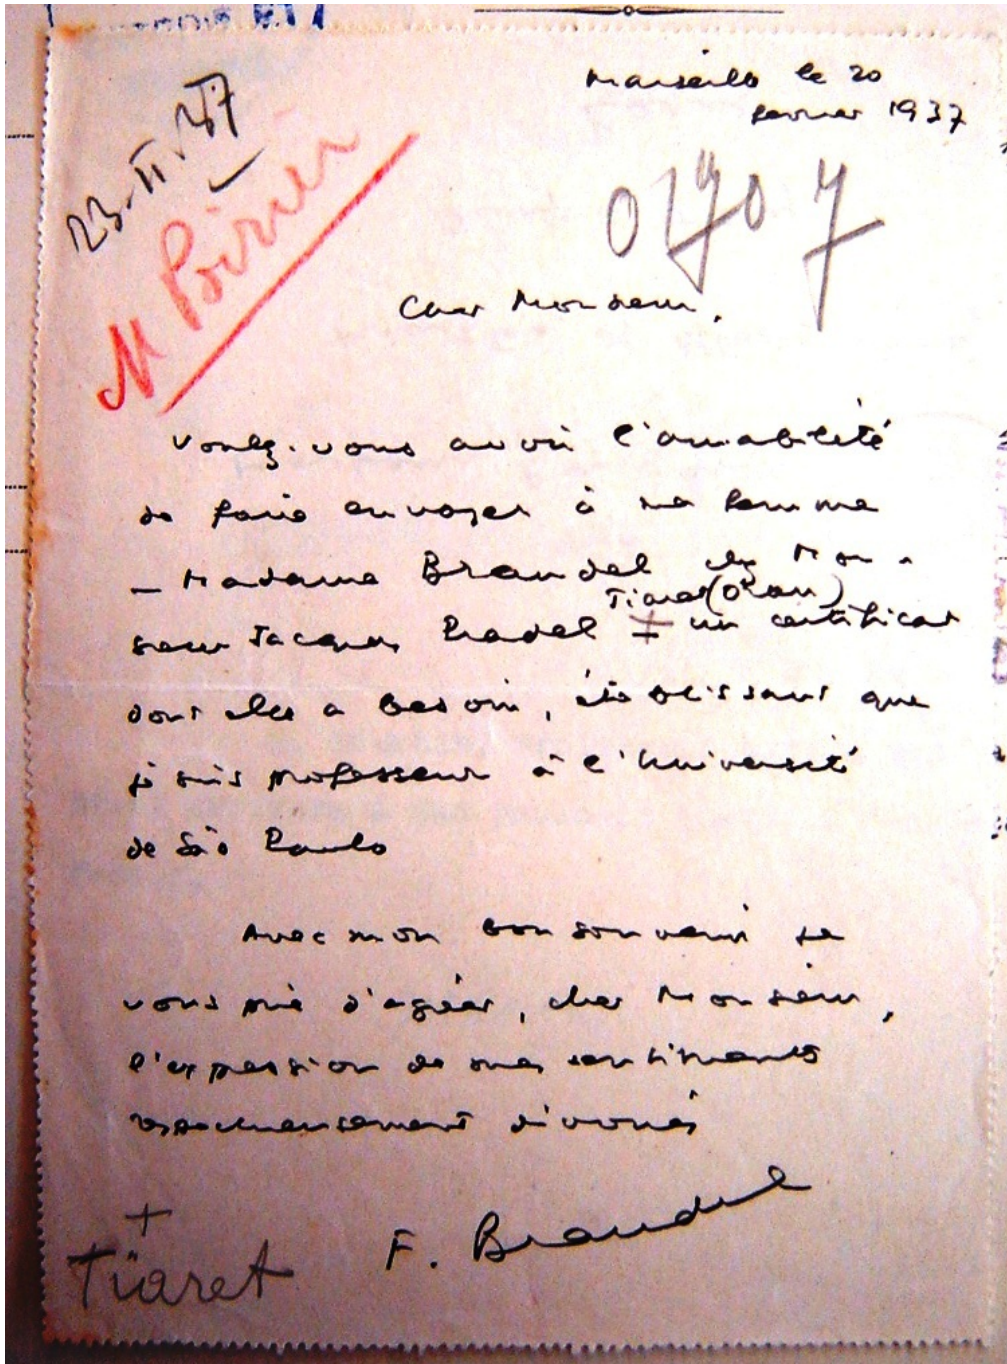 Marseille le 20
fevrier 1937
23-II-37
M Poirier
01707
Cher Monsieur,
Voulez-vous avoir l'amabilité
de faire envoyer à ma femme
– Madame Braudel chez Mon-
Tiaret (Oran)
sieur Jacques Pradel + un certificat
dont elle a besoin, établissant que
je suis professeur à l'Université
de São Paulo
Avec mon bon souvenir je
vous prie d'agréer, cher Monsieur,
l'expression de mes sentiments
respectueusement dévoués
F. Braudel
+
Tiaret